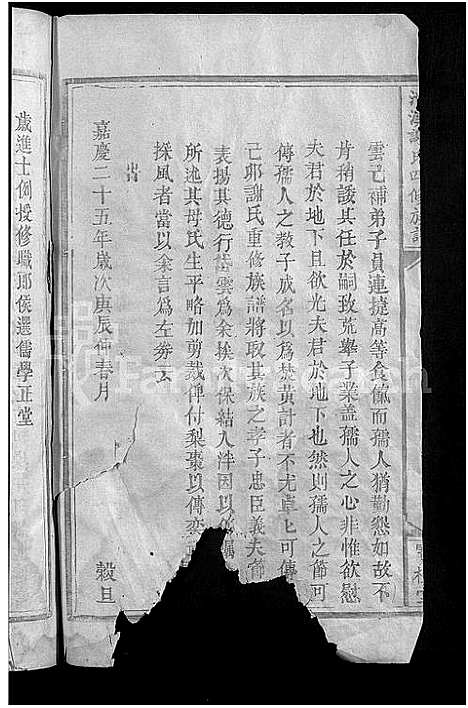 雲已補弟子員連捷高等食餼而孺人猶勤懇如故不
肯稍諉其任於嗣玫荒舉子業蓋孺人之心非惟欲慰
夫君於地下且欲光夫君於地下也然則孺人之節可
傳孺人之教子成名以為焚黃計者不尤卓卓可傳
己卯謝氏重修族譜將取其族之孝子忠臣義夫節
表揚其德行雲為余挨次保結入泮因以
所述其母氏生平略加剪裁俾付梨棗以傳
採風者當以余言為左劵云
嘉慶二十五年歲次庚辰仲春月
穀旦
歲進士例授修職郎候選儒學正堂
FamilySearch